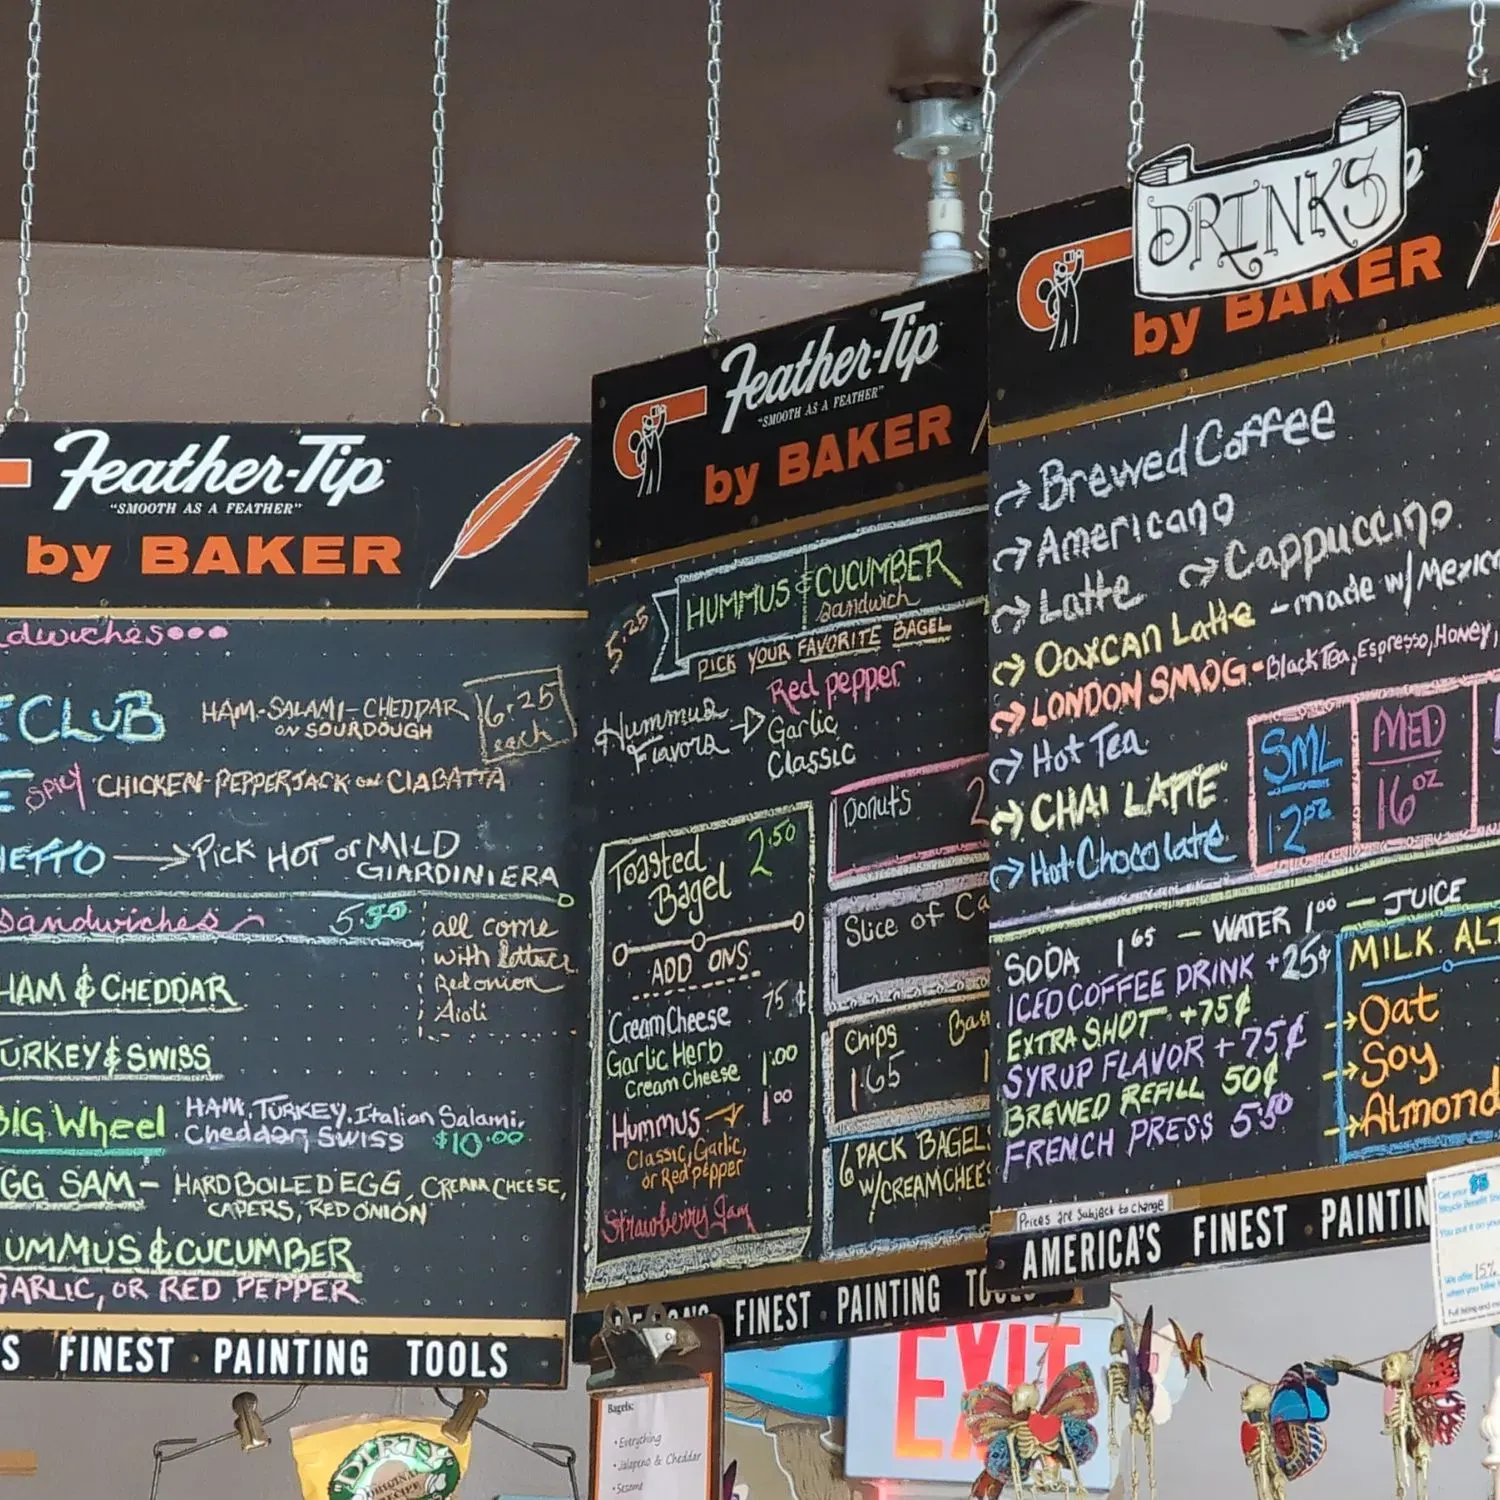 Feather-Tip
"SMOOTH AS A FEATHER"
by BAKER
CLUB HAM-SALAMI-CHEDDAR
ON SOURDOUGH
6.25
each
SPICY CHICKEN-PEPPERJACK on CIABATTA
PICK HOT or MILD
GIARDINIERA
sandwiches
all come
with lettuce
Red onion
Aioli
HAM & CHEDDAR
TURKEY & SWISS
BIG Wheel HAM, TURKEY, Italian Salami,
Cheddar, SWISS $10.00
EGG SAM - HARD BOILED EGG, CREAM CHEESE,
CAPERS, RED ONION
HUMMUS & CUCUMBER
GARLIC, OR RED PEPPER
FINEST PAINTING TOOLS
DIRTY
ORIGINAL
RECIPE
Feather-Tip
"SMOOTH AS A FEATHER"
by BAKER
5.25
HUMMUS & CUCUMBER
sandwich
PICK YOUR FAVORITE BAGEL
Hummus
Flavors
Red pepper
Garlic
Classic
Toasted
Bagel 2.50
ADD ONS
Cream Cheese 75¢
Garlic Herb
Cream Cheese 1.00
Hummus 1.00
Classic, Garlic,
or Red pepper
Strawberry Jam
Donuts 2
Slice of
Chips
1.65
6 PACK BAGELS
W/CREAM CHEESE
FINEST PAINTING TOOLS
Bagels:
• Everything
• Jalapeno & Cheddar
• Sesame
EXIT
DRINKS
by BAKER
Brewed Coffee
Americano
Latte Cappuccino
Oaxcan Latte - made w/
LONDON SMOG - Black Tea, Espresso, Honey,
Hot Tea
CHAI LATTE
Hot Chocolate
SML
12oz
MED
16oz
SODA 1.65 - WATER 1.00 - JUICE
ICED COFFEE DRINK +25¢
EXTRA SHOT +75¢
SYRUP FLAVOR +75¢
BREWED REFILL 50¢
FRENCH PRESS 5.50
MILK ALT
→Oat
→Soy
→Almond
Prices are Subject to Change
AMERICA'S FINEST PAINTIN
Get your $5